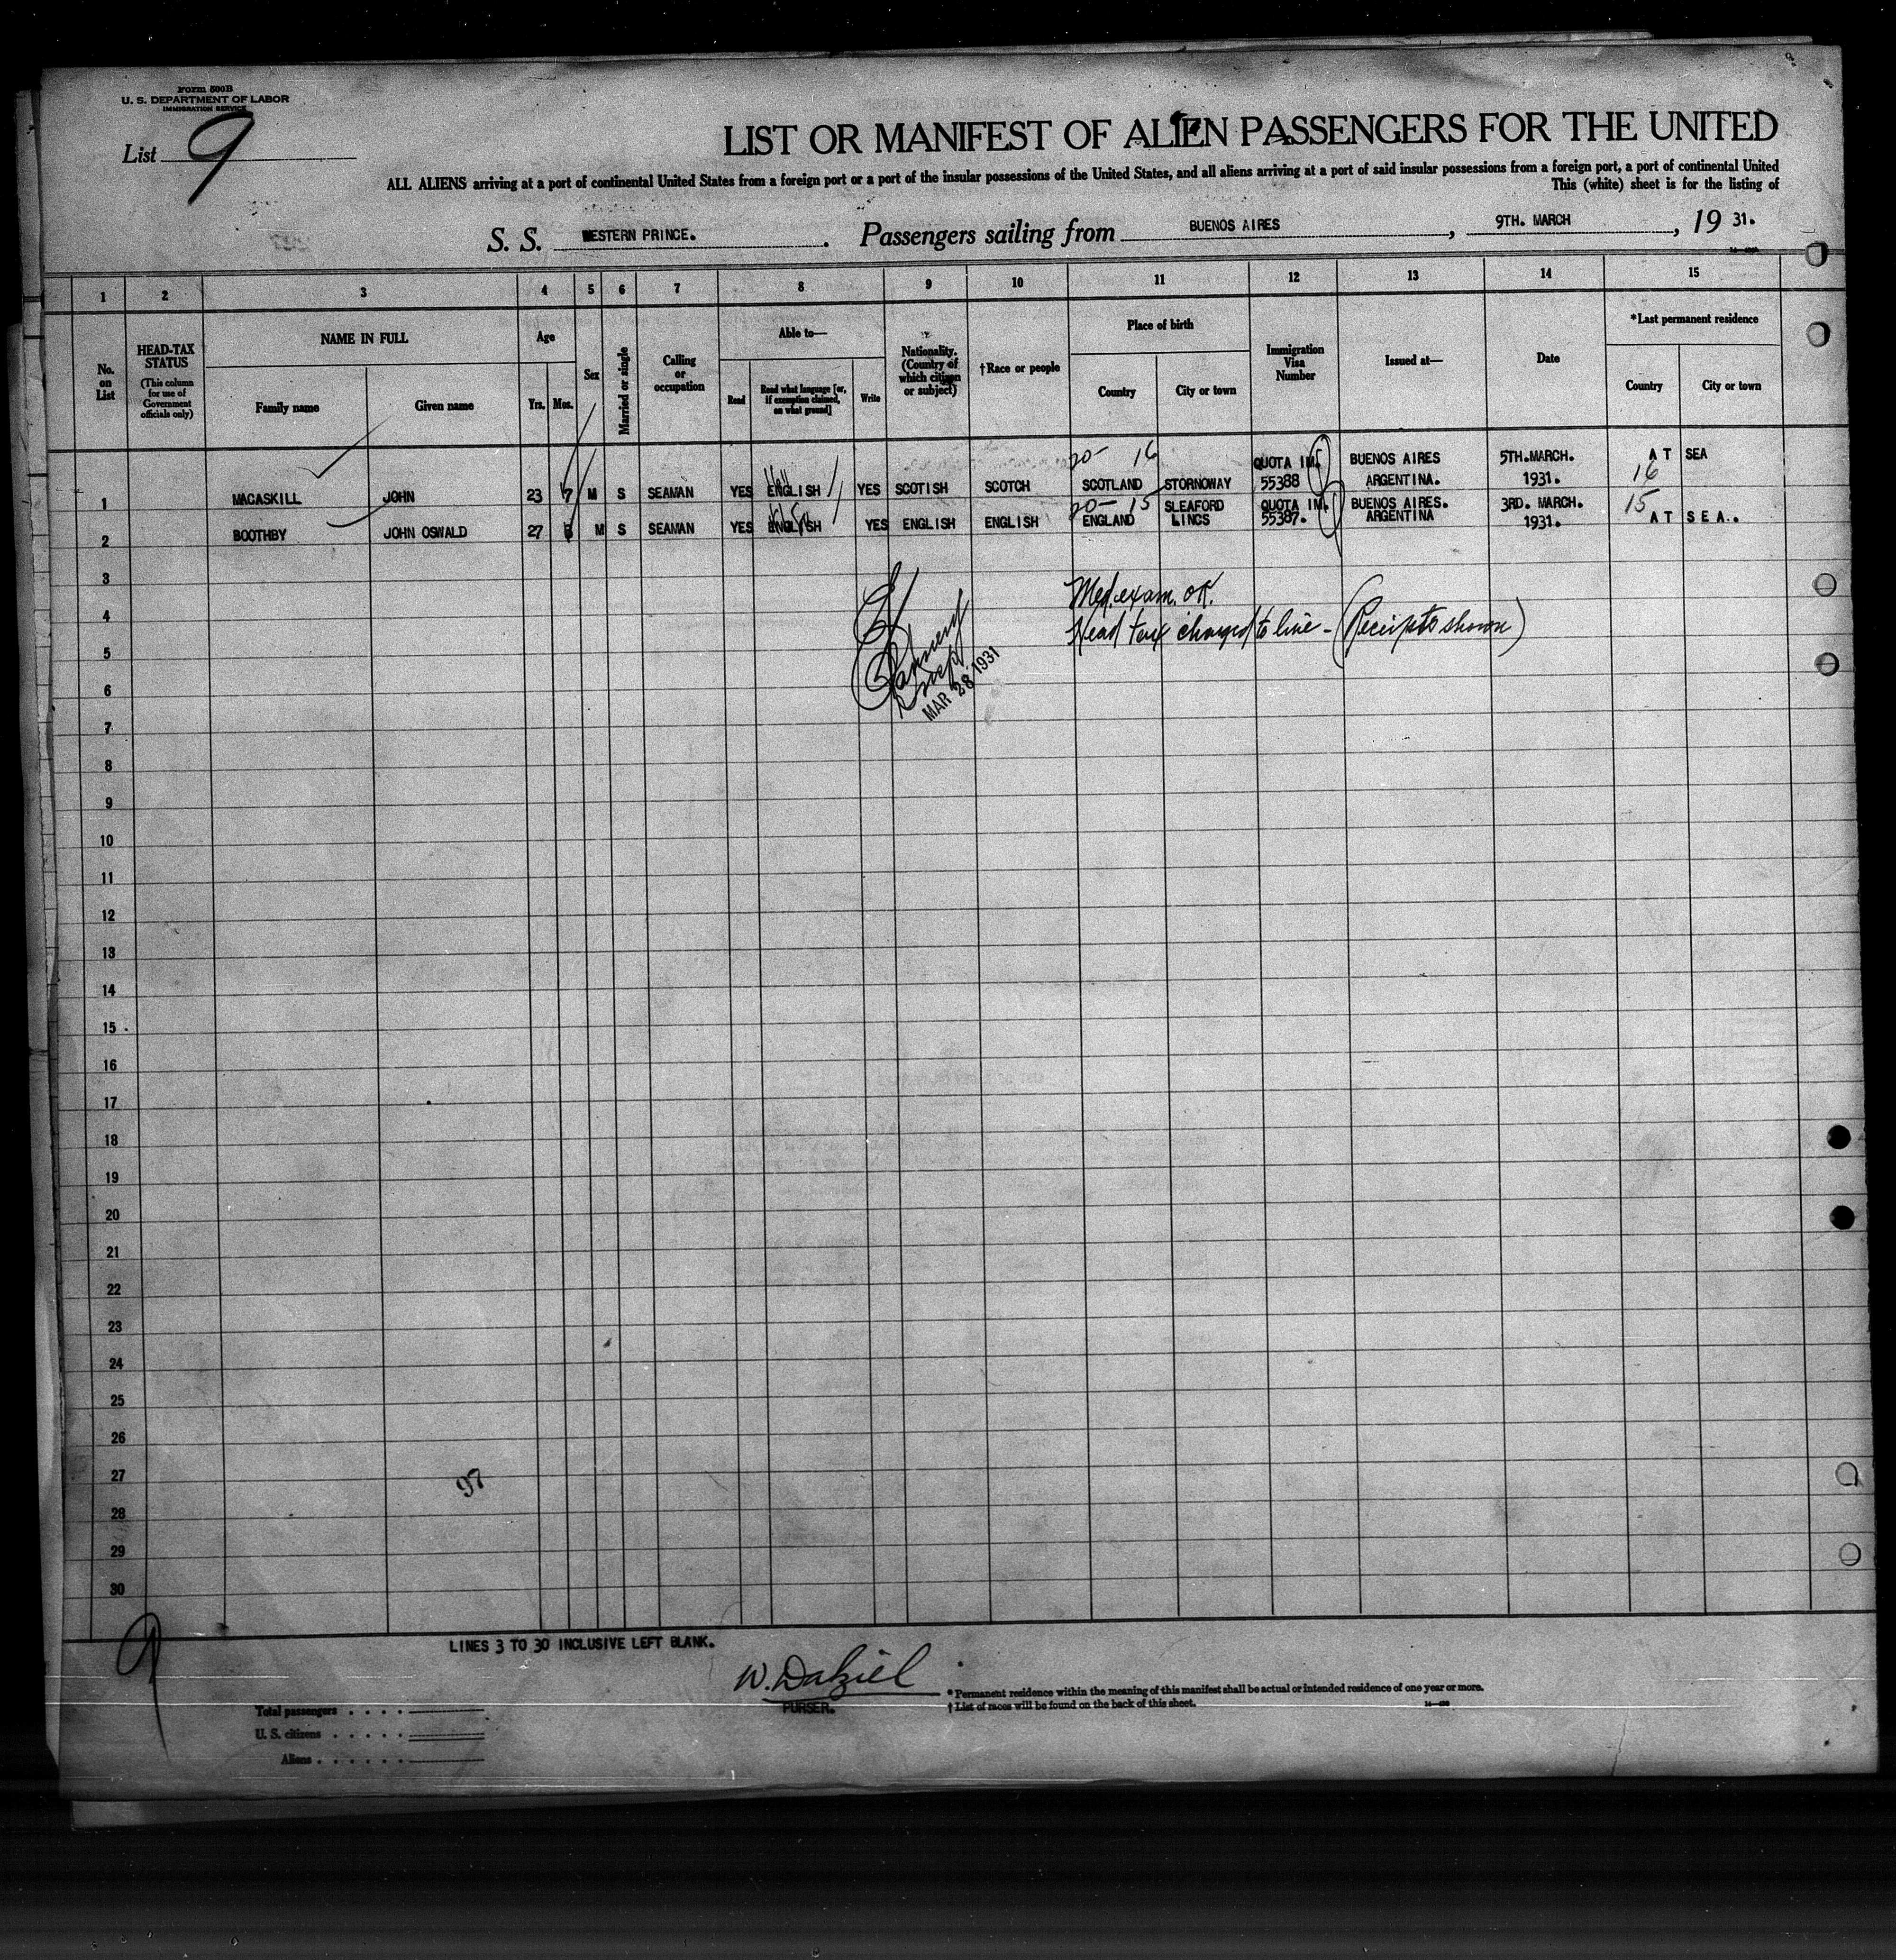 Form 500B
U. S. DEPARTMENT OF LABOR
IMMIGRATION SERVICE
List 9
LIST OR MANIFEST OF ALIEN PASSENGERS FOR THE UNITED
ALL ALIENS arriving at a port of continental United States from a foreign port or a port of the insular possessions of the United States, and all aliens arriving at a port of said insular possessions from a foreign port, a port of continental United
This (white) sheet is for the listing of
S. S. WESTERN PRINCE. Passengers sailing from BUENOS AIRES, 9TH. MARCH, 19 31.
1 2 3 4 5 6 7 8 9 10 11 12 13 14 15
No. on List
HEAD-TAX STATUS
(This column for use of Government officials only)
NAME IN FULL
Family name Given name
Age
Yrs. Mos.
Sex
Married or single
Calling or occupation
Able to—
Read
Read what language [or, if exemption claimed, on what ground]
Write
Nationality. (Country of which citizen or subject)
†Race or people
Place of birth
Country City or town
Immigration Visa Number
Issued at—
Date
*Last permanent residence
Country City or town
20- 16
QUOTA IM. BUENOS AIRES 5TH.MARCH. AT SEA
16
1 MACASKILL JOHN 23 7 M S SEAMAN YES ENGLISH YES SCOTISH SCOTCH SCOTLAND STORNOWAY 55388 ARGENTINA. 1931.
20- 15 SLEAFORD QUOTA IM. BUENOS AIRES. 3RD. MARCH. 15
2 BOOTHBY JOHN OSWALD 27 M S SEAMAN YES ENGLISH YES ENGLISH ENGLISH ENGLAND LINCS 55387. ARGENTINA 1931. AT SEA.
3
Med. exam. OK.
4
Head tax charged to line - (Receipts shown)
5
6
MAR 28 1931
7
8
9
10
11
12
13
14
15
16
17
18
19
20
21
22
23
24
25
26
27
97
28
29
30
9
LINES 3 TO 30 INCLUSIVE LEFT BLANK.
W. Dalziel
PURSER.
* Permanent residence within the meaning of this manifest shall be actual or intended residence of one year or more.
† List of races will be found on the back of this sheet.
Total passengers
U. S. citizens
Aliens